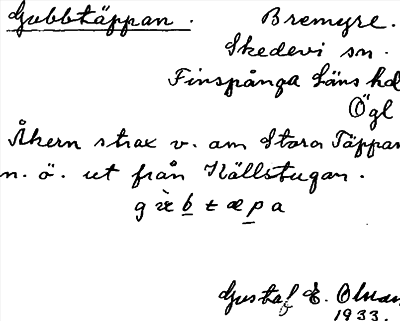 Gubbtäppan. Bremyre.
Skedevi sn.
Finspånga läns hd
Ögl
Åkern strax v. om Stora Täppan
n. ö. ut från Källstugan.
g æ̀ b t æ p a
Gustaf E. Olsson
1933.